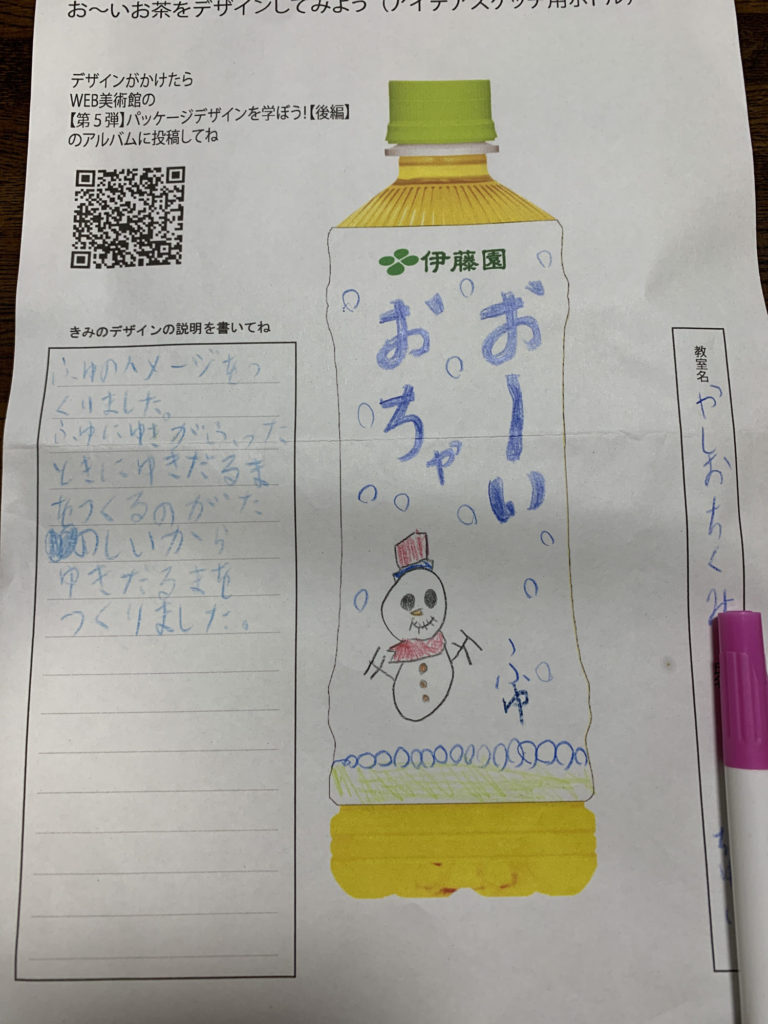 お〜いお茶をデザインしてみよう（アイデアスケッチ用ボトル）
デザインがかけたら
WEB美術館の
【第５弾】パッケージデザインを学ぼう!【後編】
のアルバムに投稿してね
きみのデザインの説明を書いてね
ふゆのイメージをつ
くりました。
ふゆにゆきがふった
ときにゆきだるま
をつくるのがた
のしいから
ゆきだるまを
つくりました。
伊藤園
おーい
おちゃ
ふゆ
教室名
やしおちくみ